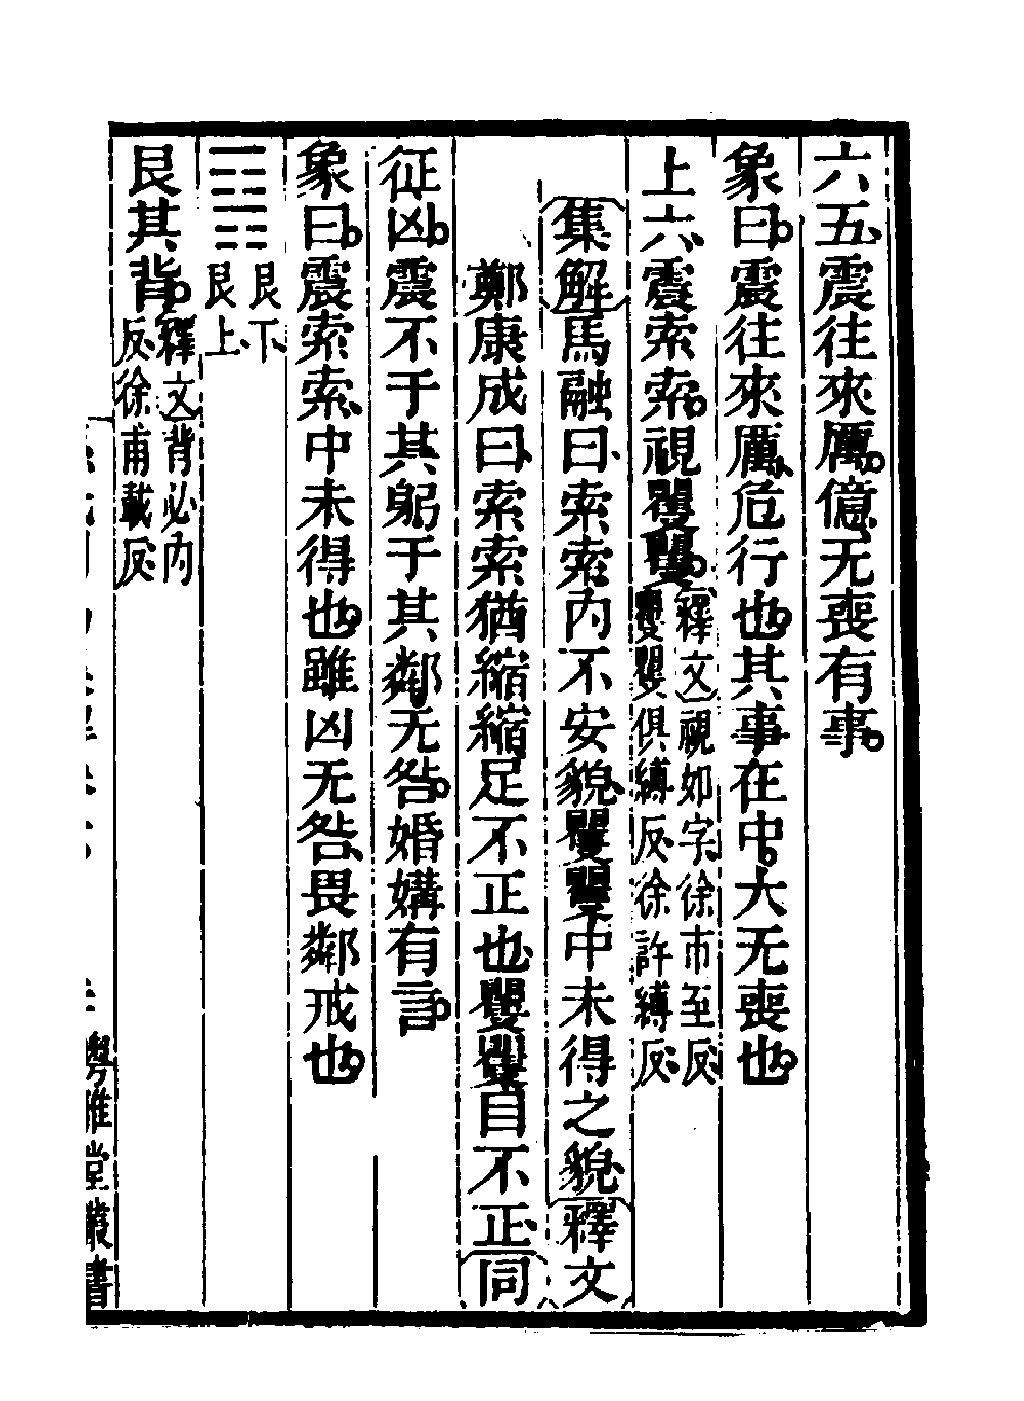 六五、震往來厲。億、无喪有事。
象曰。震往來厲、危行也。其事在中。大无喪也。
上六、震索索。視矍矍。釋文視如字、徐市至反、
矍矍俱縛反、徐許縛反、
集解馬融曰、索索、內不安貌、矍矍、中未得之貌、釋文
鄭康成曰、索索、猶縮縮足不正也、矍矍、目不正、同
征凶。震不于其躬于其鄰、无咎。婚媾有言。
象曰。震索索、中未得也。雖凶无咎、畏鄰戒也。
䷳艮下、
艮上、
艮其背。釋文背必內
反、徐甫載反、
粵雅堂叢書